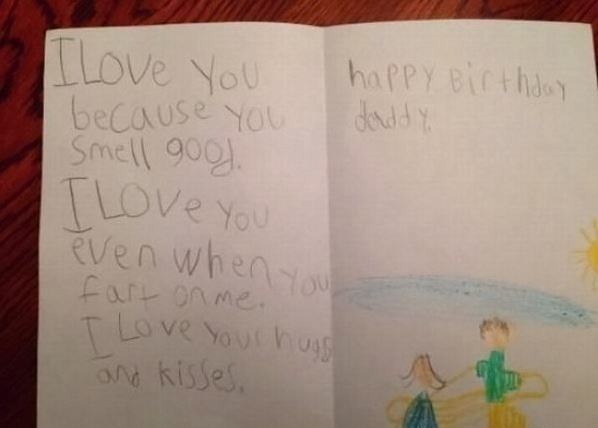 I Love You
because you
Smell good.
I Love you
even when you
fart on me.
I Love your hugs
and kisses.
happy Birthday
daddy.